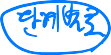 단계별로